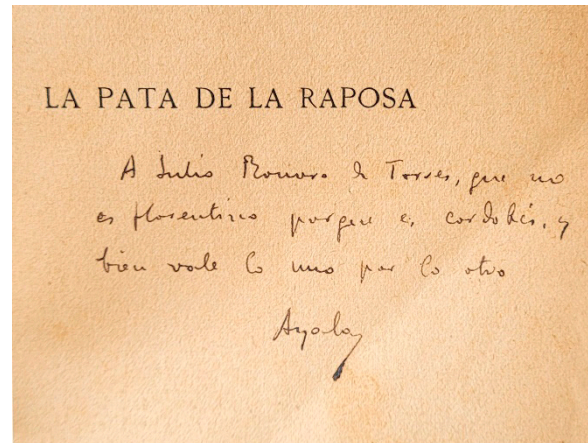 LA PATA DE LA RAPOSA
A Julio Romero de Torres, que no
es florentino porque es cordobés, y
bien vale lo uno por lo otro
Ayala